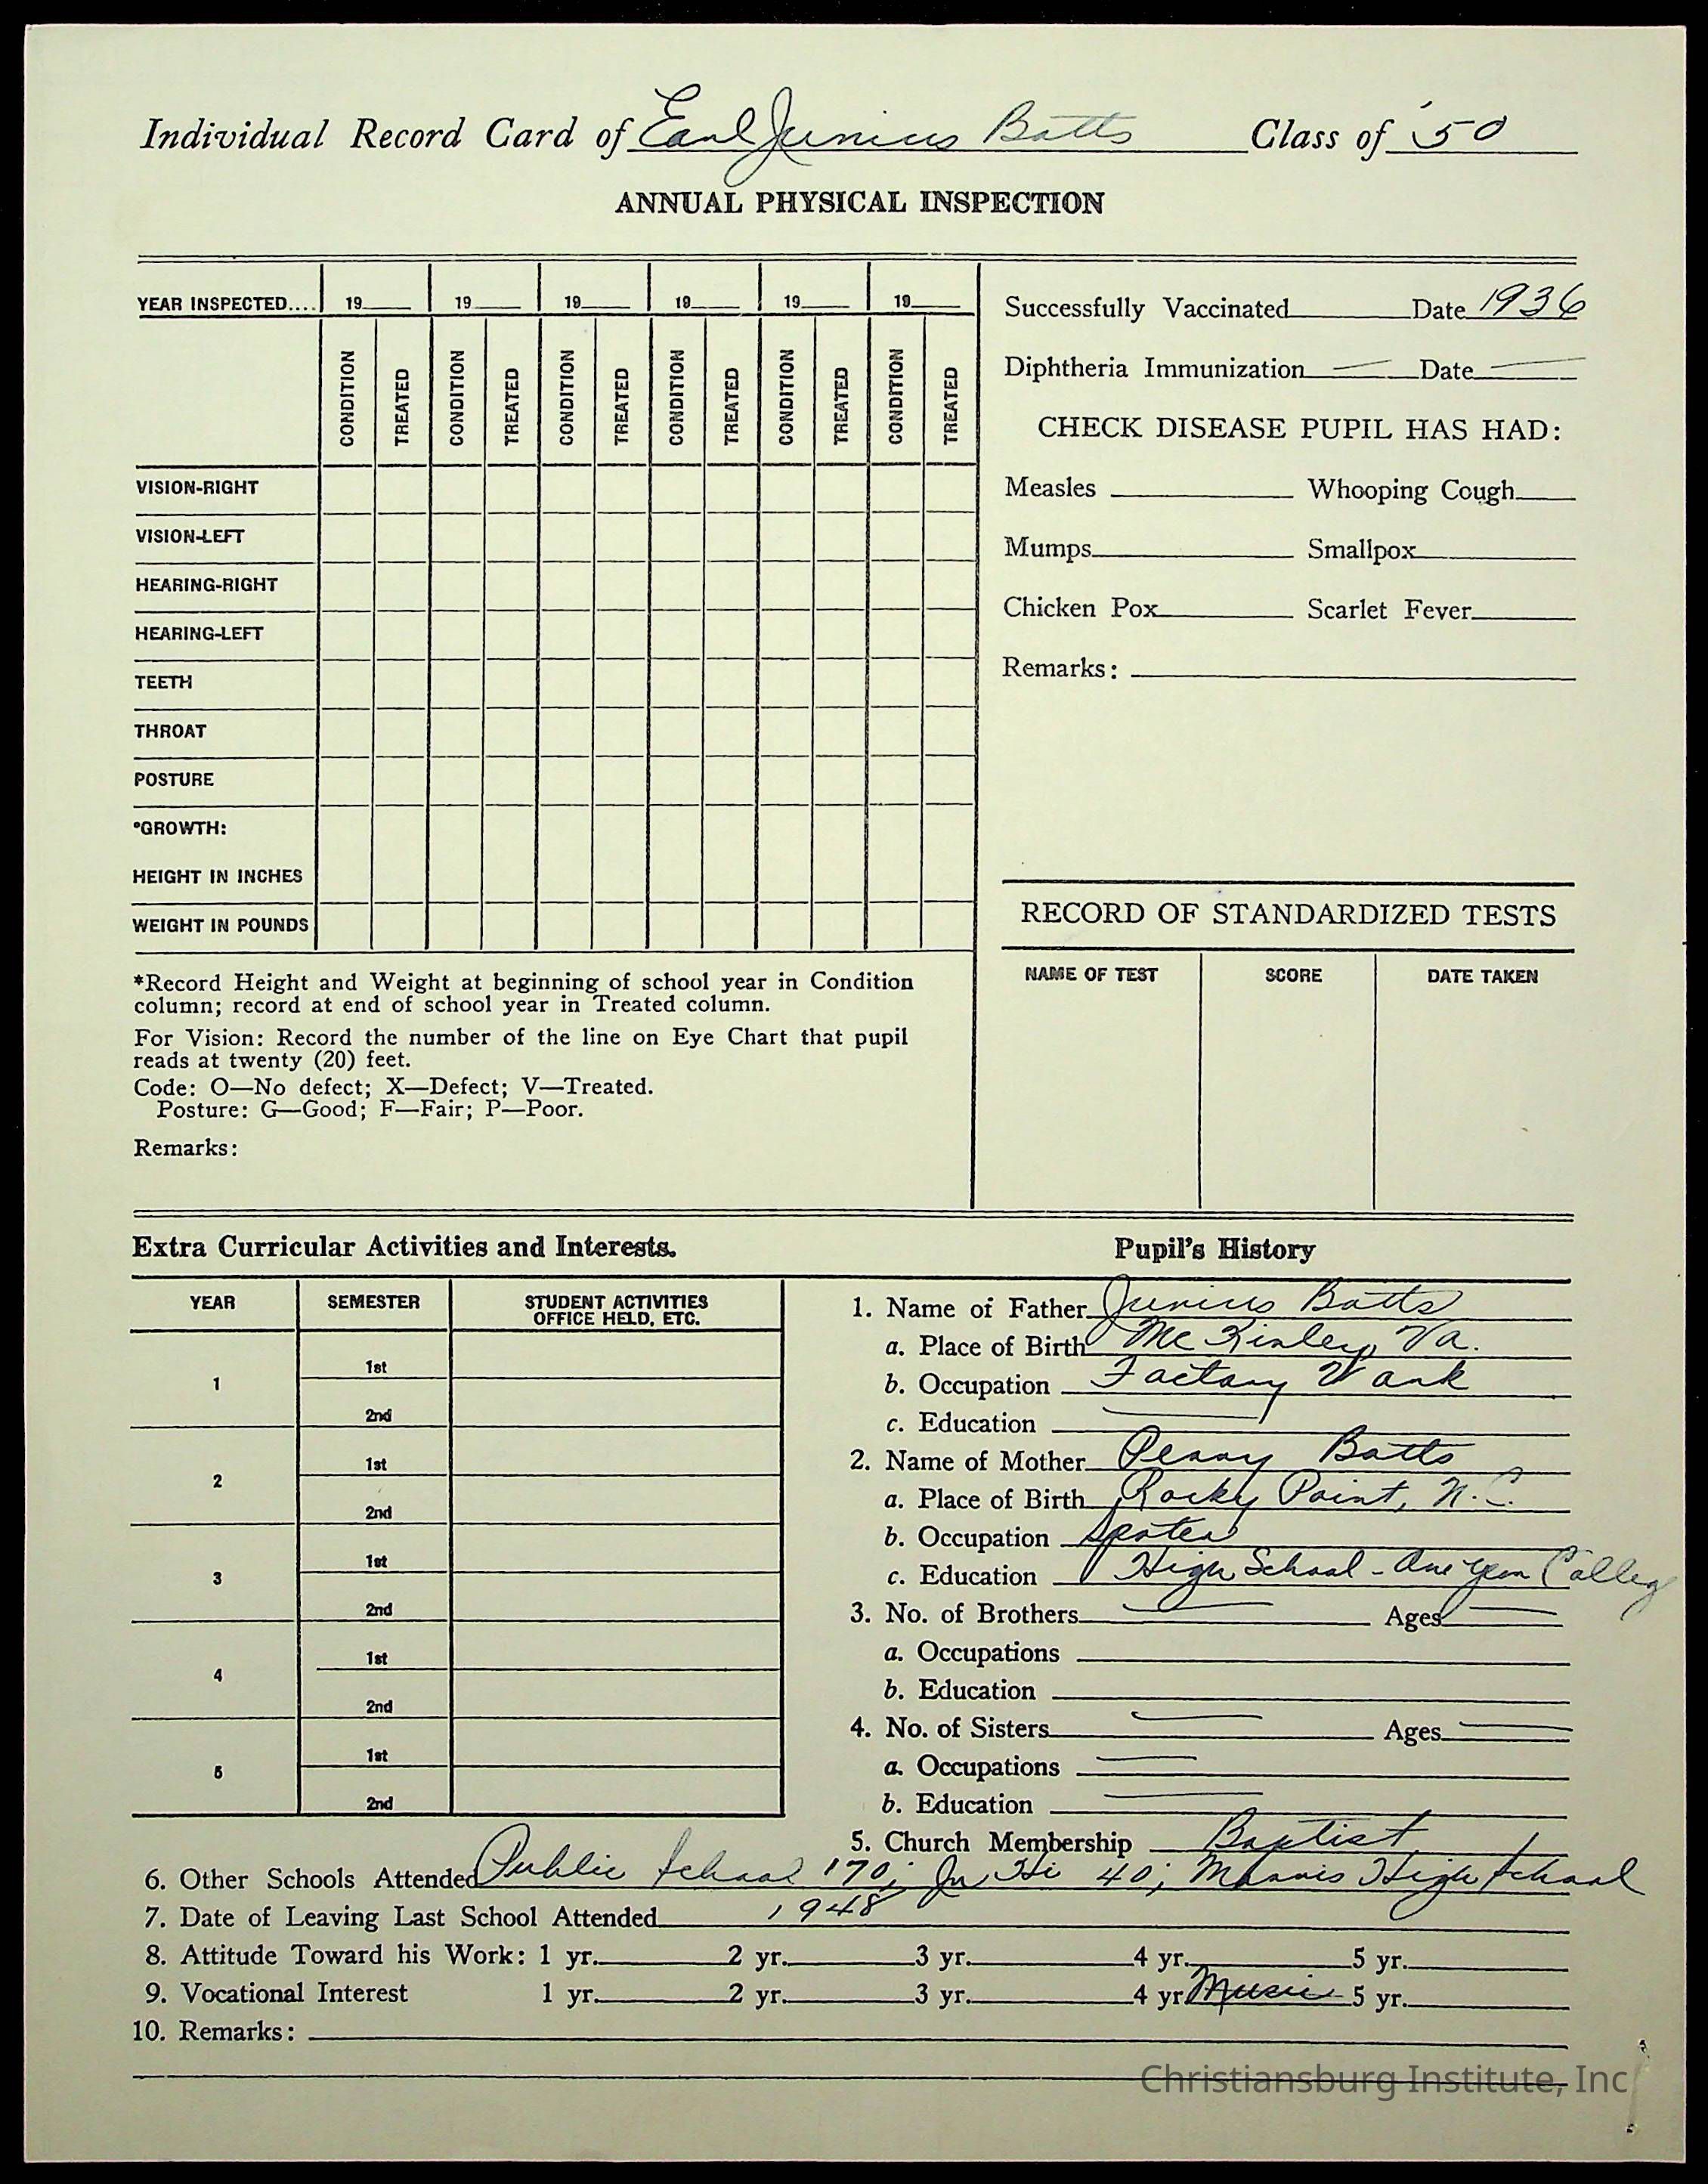 Individual Record Card of Earl Junius Batts Class of '50
ANNUAL PHYSICAL INSPECTION
YEAR INSPECTED.... 19 19 19 19 19 19
CONDITION TREATED CONDITION TREATED CONDITION TREATED CONDITION TREATED CONDITION TREATED CONDITION TREATED
VISION-RIGHT
VISION-LEFT
HEARING-RIGHT
HEARING-LEFT
TEETH
THROAT
POSTURE
*GROWTH:
HEIGHT IN INCHES
WEIGHT IN POUNDS
*Record Height and Weight at beginning of school year in Condition
column; record at end of school year in Treated column.
For Vision: Record the number of the line on Eye Chart that pupil
reads at twenty (20) feet.
Code: O—No defect; X—Defect; V—Treated.
Posture: G—Good; F—Fair; P—Poor.
Remarks:
Successfully Vaccinated Date 1936
Diphtheria Immunization — Date —
CHECK DISEASE PUPIL HAS HAD:
Measles Whooping Cough
Mumps Smallpox
Chicken Pox Scarlet Fever
Remarks:
RECORD OF STANDARDIZED TESTS
NAME OF TEST SCORE DATE TAKEN
Extra Curricular Activities and Interests.
YEAR SEMESTER STUDENT ACTIVITIES
OFFICE HELD, ETC.
1 1st
2nd
2 1st
2nd
3 1st
2nd
4 1st
2nd
5 1st
2nd
Pupil's History
1. Name of Father Junius Batts
a. Place of Birth McKinley, Va.
b. Occupation Factory Work
c. Education —
2. Name of Mother Penny Batts
a. Place of Birth Rocky Point, N.C.
b. Occupation
c. Education High School - One Year College
3. No. of Brothers — Ages —
a. Occupations
b. Education
4. No. of Sisters — Ages —
a. Occupations —
b. Education —
5. Church Membership Baptist
6. Other Schools Attended Public School 170; Jr Hi 40; Morris High School
7. Date of Leaving Last School Attended 1948
8. Attitude Toward his Work: 1 yr. 2 yr. 3 yr. 4 yr. 5 yr.
9. Vocational Interest 1 yr. 2 yr. 3 yr. 4 yr. Music 5 yr.
10. Remarks:
Christiansburg Institute, Inc